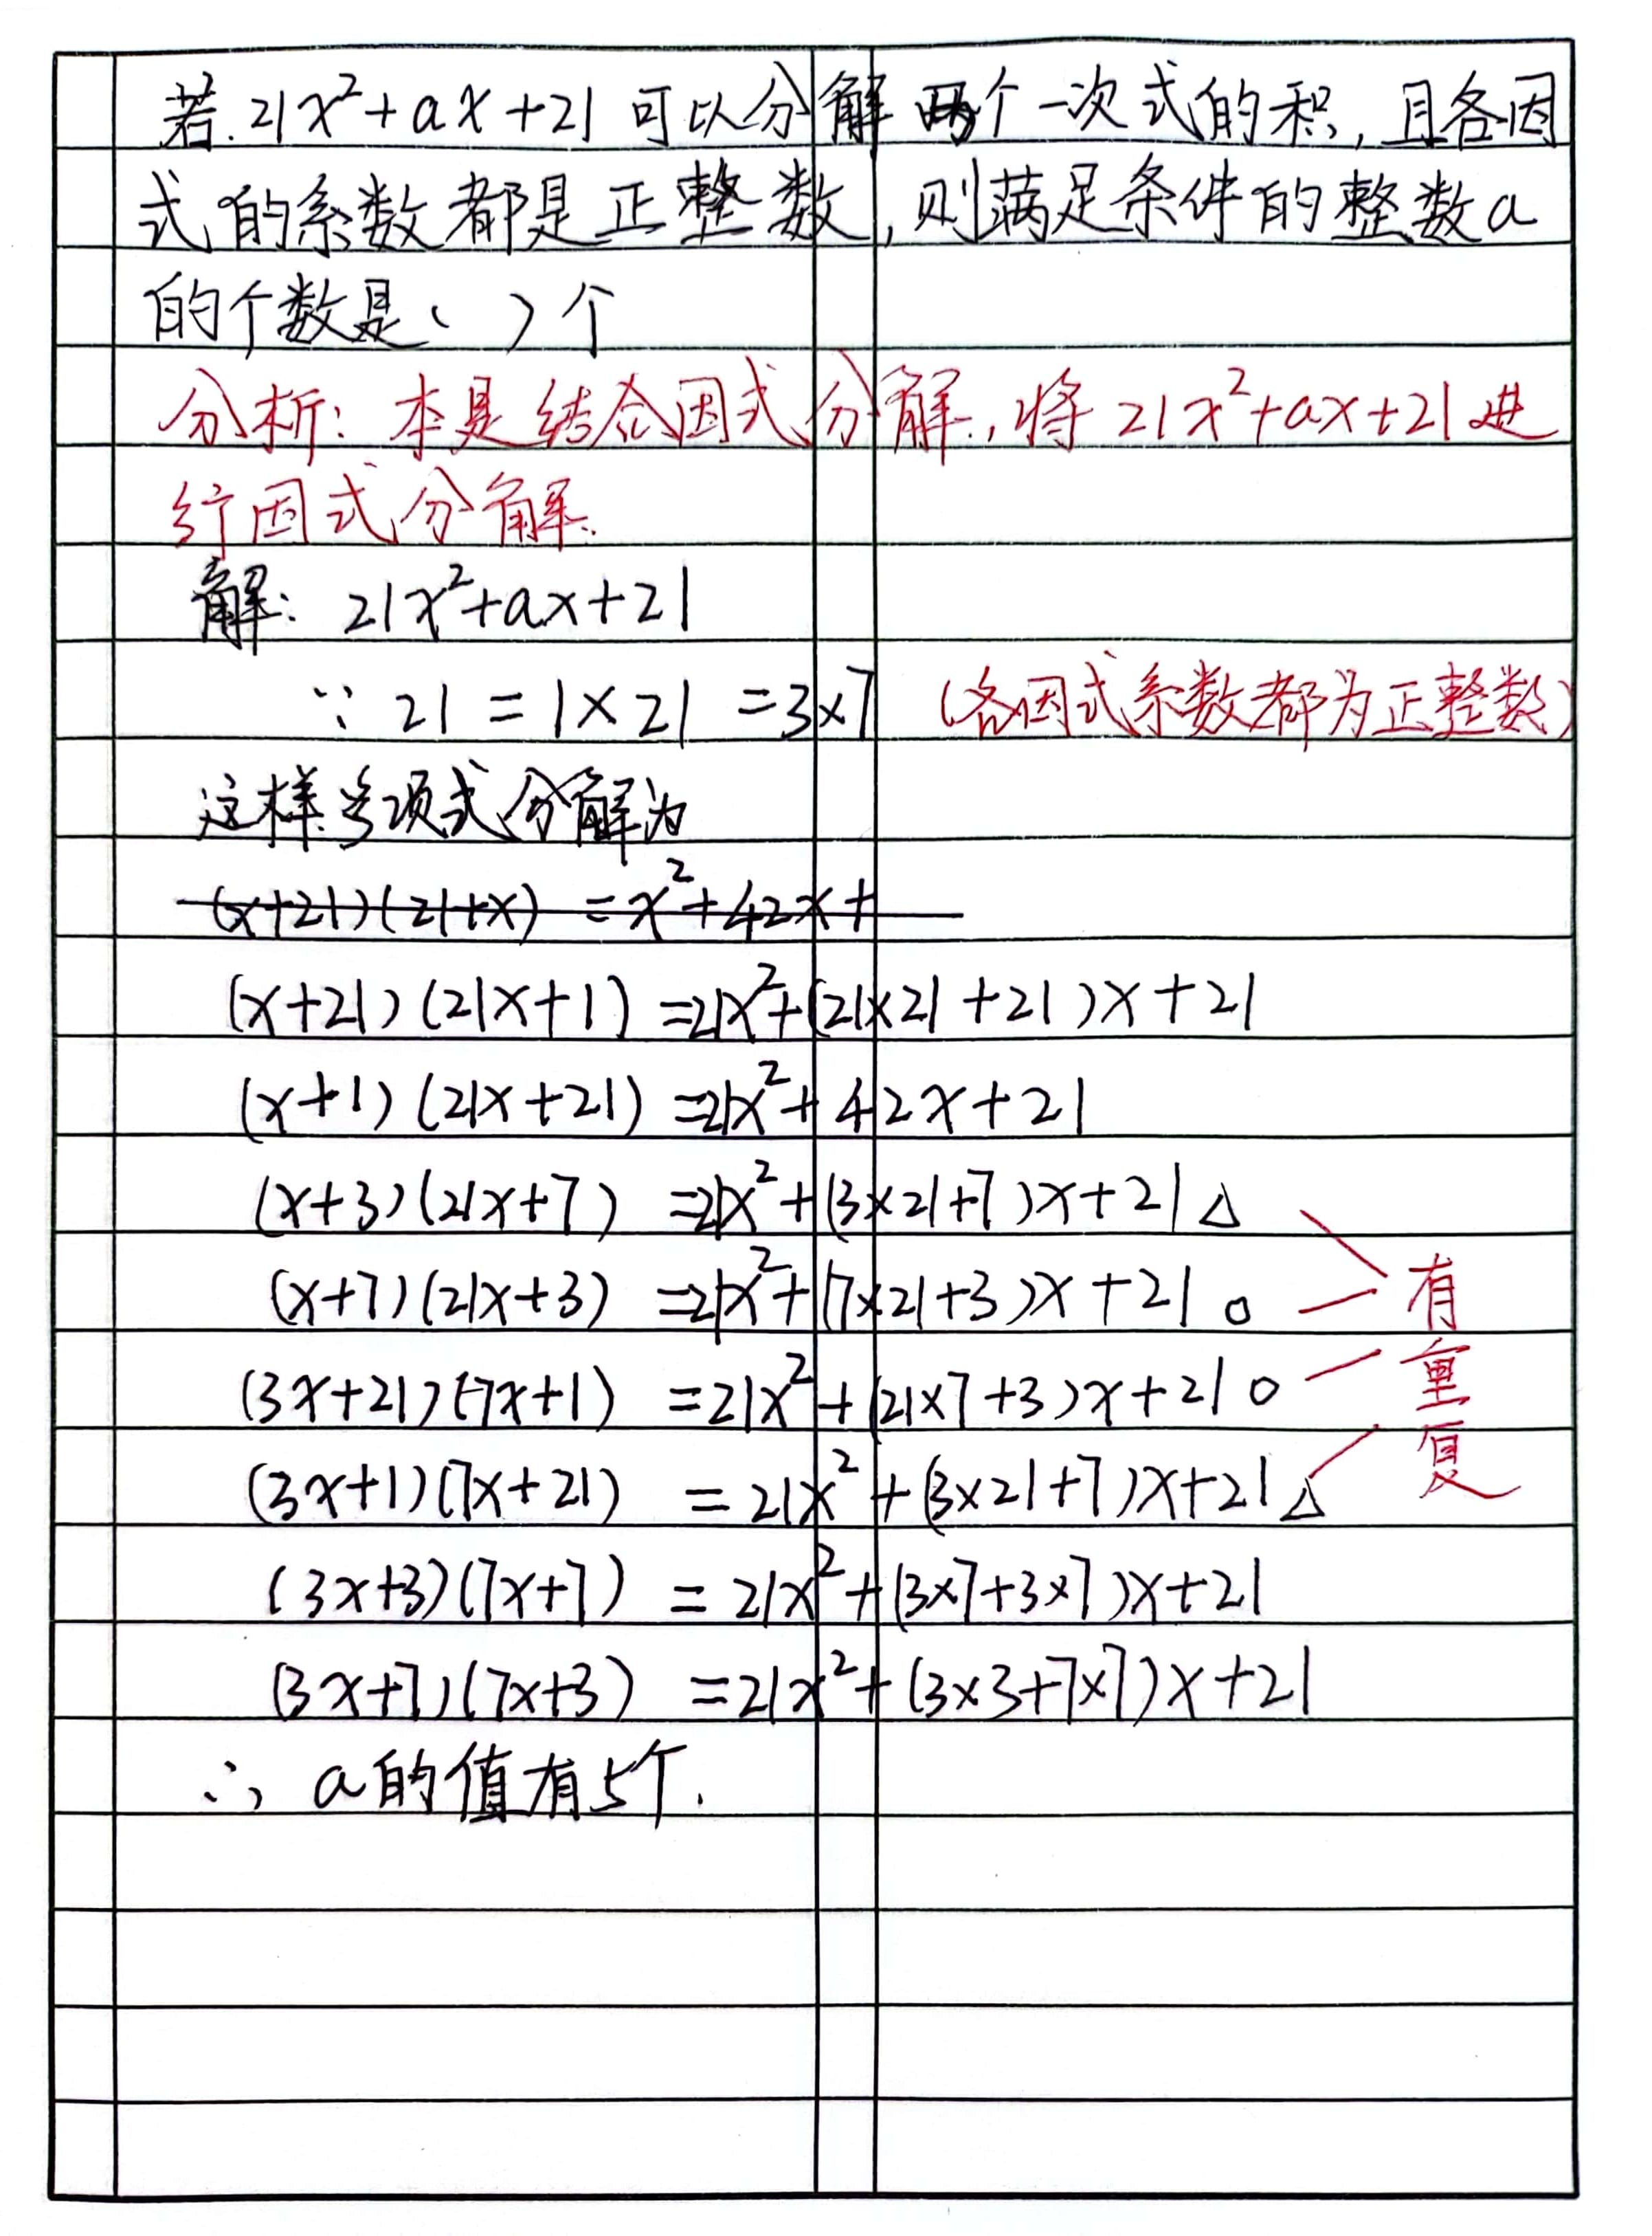 若.21x²+ax+21 可以分解 两个一次式的积,且各因
式的系数都是正整数,则满足条件的整数a
的个数是( )个
分析:本是结合因式分解.,将 21x²+ax+21进
行因式分解.
解: 21x²+ax+21
∵ 21 = 1×21 =3×7 (各因式系数都为正整数)
这样多项式分解为
(x+21)(21+x) = x²+42x+
(x+21)(21x+1) =21x²+(21×21+21)x+21
(x+1)(21x+21) =21x²+42x+21
(x+3)(21x+7) =21x²+(3×21+7)x+21 △
(x+7)(21x+3) =21x²+(7×21+3)x+21 ○ 有
(3x+21)(7x+1) =21x²+(21×7+3)x+21 ○ 重
(3x+1)(7x+21) = 21x²+(3×21+7)x+21 △ 复
(3x+3)(7x+7) = 21x²+(3×7+3×7)x+21
(3x+7)(7x+3) =21x²+(3×3+7×7)x+21
∴ a的值有5个.